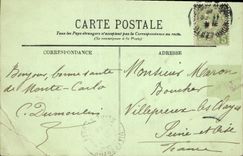 CARTE POSTALE
Tous les Pays étrangers n'acceptent pas la Correspondance au recto.
CORRESPONDANCE
ADRESSE
Bonjour, bonne santé
de Monte-Carlo
C. Dumoulin
Monsieur Maron
Boucher
Villepreux les Clayes
Seine et Oise
France